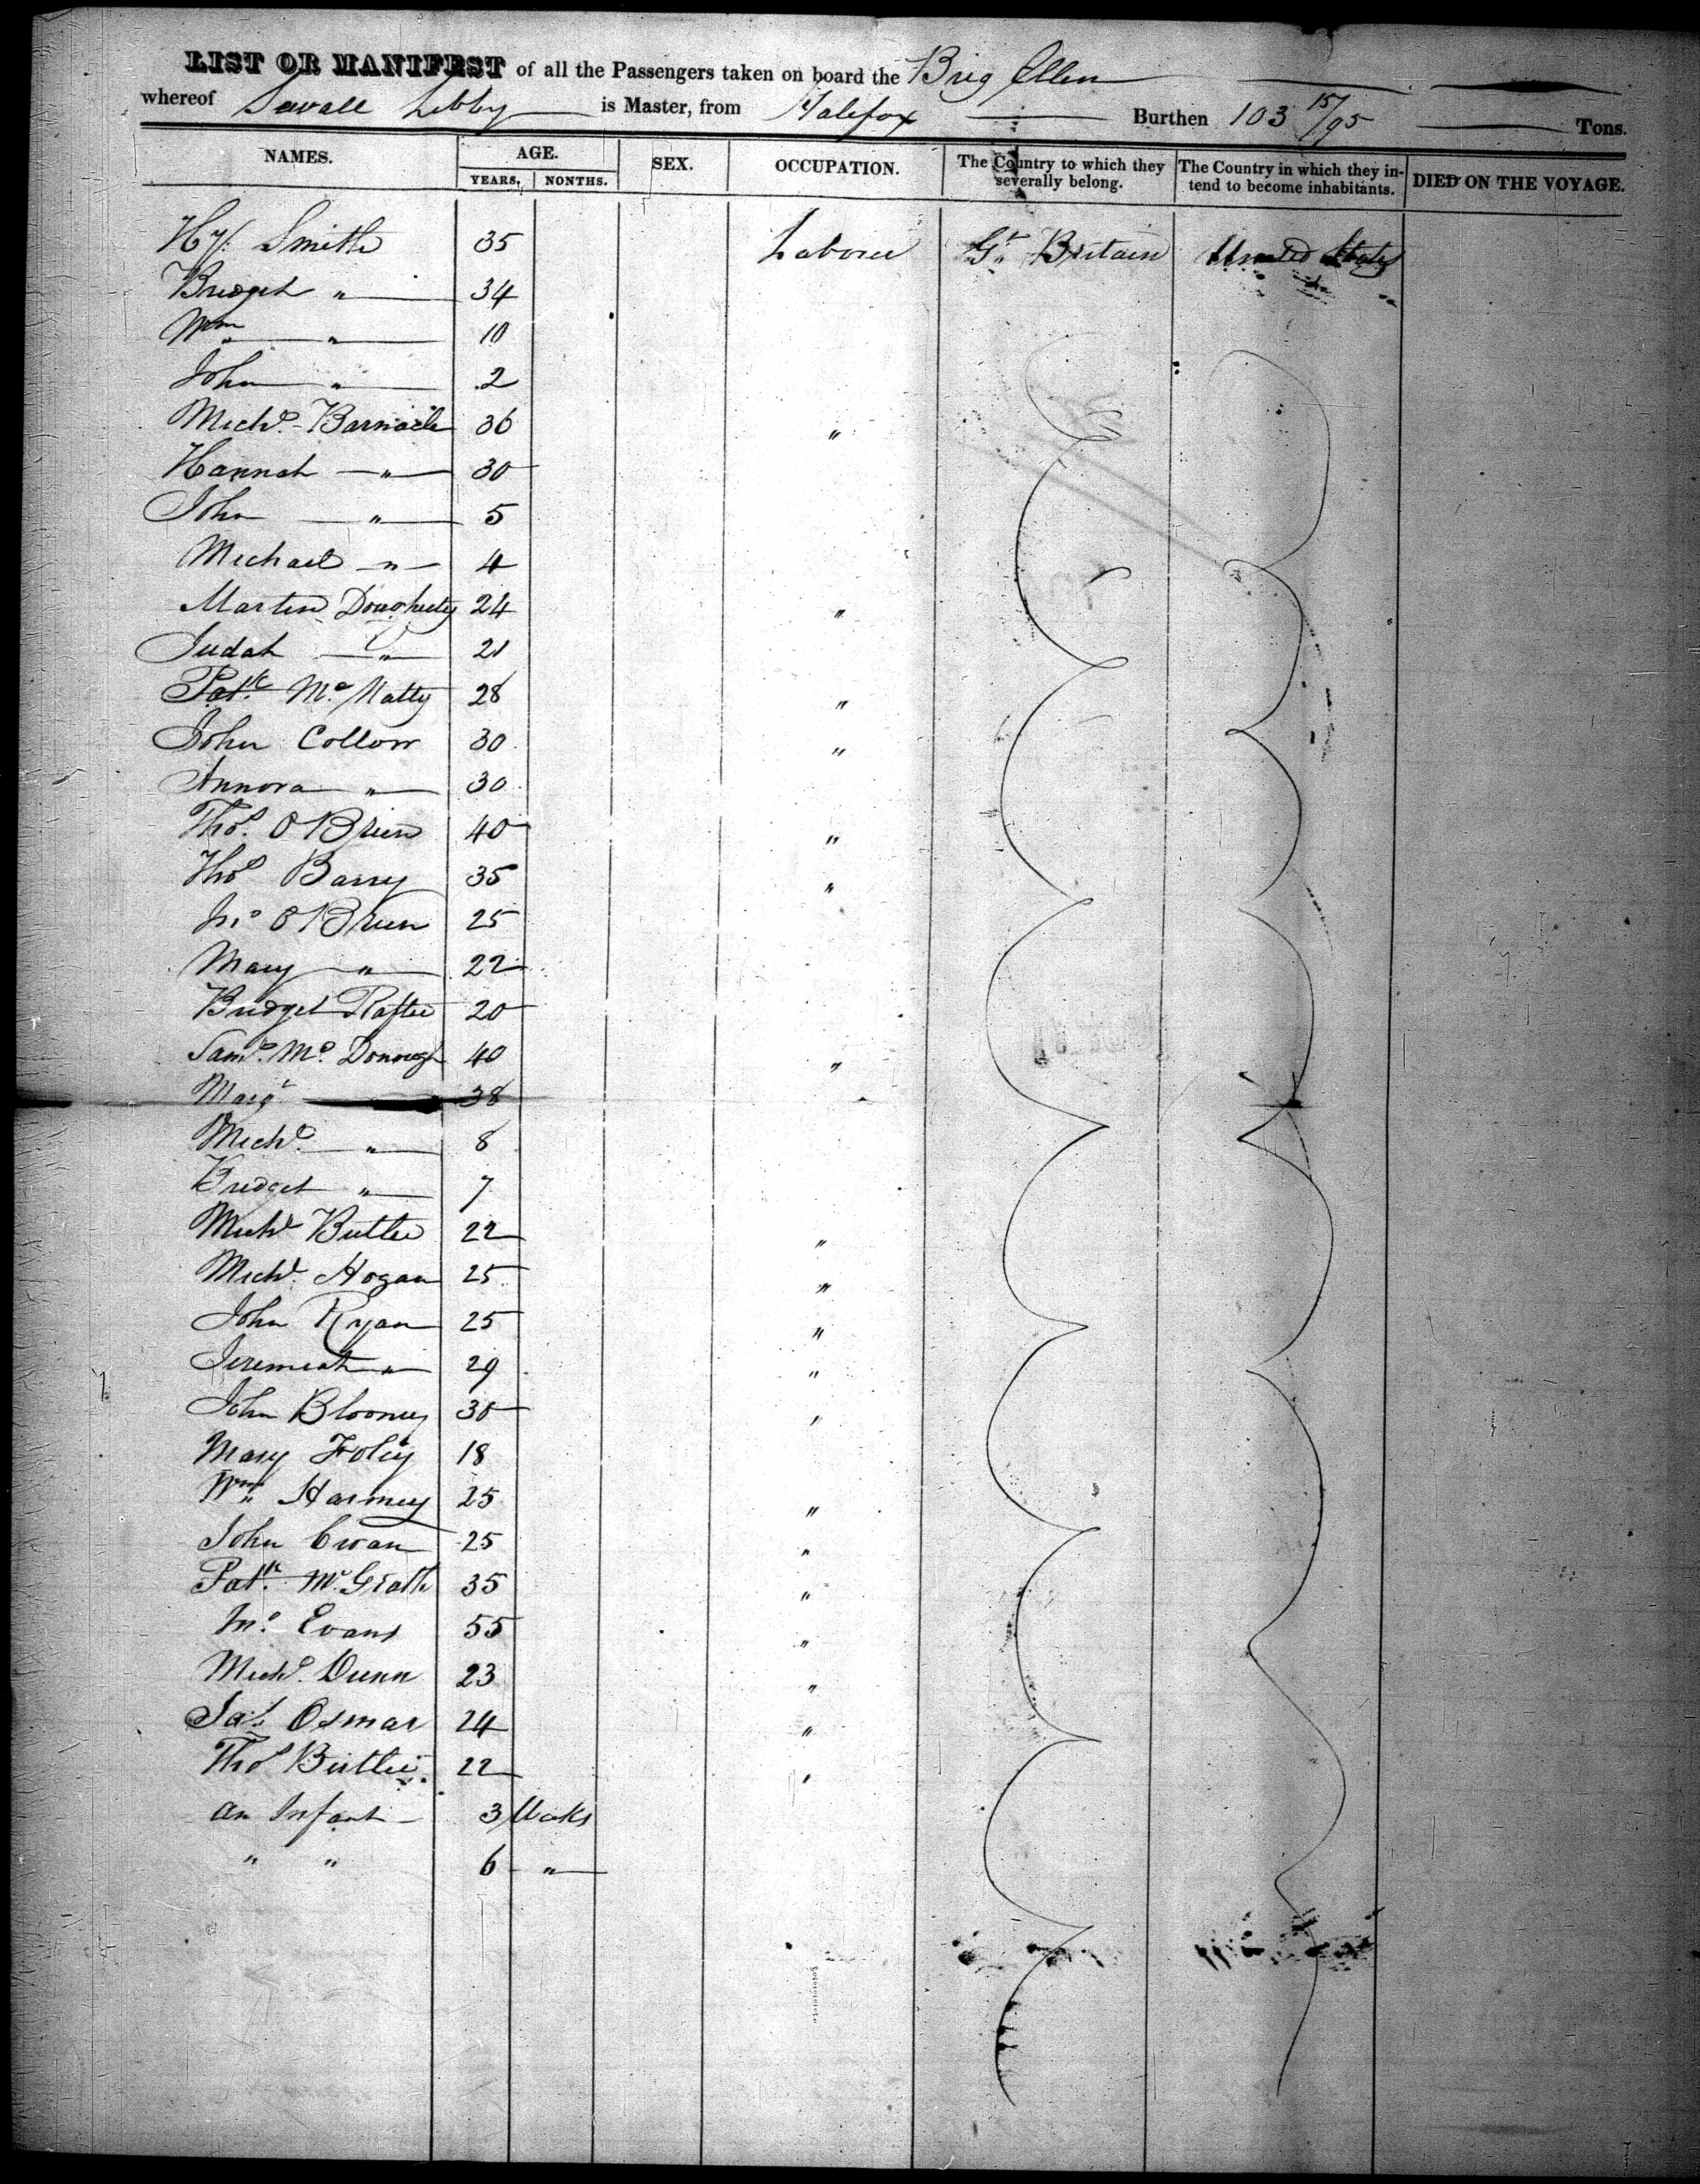 LIST OR MANIFEST of all the Passengers taken on board the Brig Ellen
whereof Sewall Libby is Master, from Halifax Burthen 103 15/95 Tons.
NAMES. AGE. YEARS. NONTHS. SEX. OCCUPATION. The Country to which they severally belong. The Country in which they intend to become inhabitants. DIED ON THE VOYAGE.
Hy. Smith 35 Laborer Gt. Britain United States
Bridget " 34
Wm " 10
John " 2
Michl. Barnacle 36 "
Hannah " 30
John " 5
Michael " 4
Martin Dougherty 24 "
Judah " 21
Patk. Mc Natty 28 "
John Collow 30 "
Annora " 30
Thos. O Brien 40 "
Thos Barry 35 "
Jno O Brien 25
Mary " 22
Bridget Rafter 20
Saml. Mc. Donough 40 "
Margt 38
Michl. " 8
Bridget " 7
Michl Butler 22 "
Michl. Hogan 25 "
John Ryan 25 "
Jeremiah " 29 "
John Bloomey 30 "
Mary Foley 18
Wm. Harmey 25 "
John Cwan 25 "
Patk. McGrath 35 "
Jno. Evans 55 "
Michl. Dunn 23 "
Jas. Osmar 24 "
Thos Butler 22 "
An Infant 3 Weeks
" " 6 "